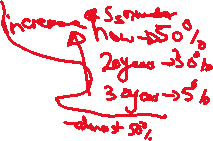 increase
now→50%
2 years→30%
3 years→5%
almost 50%